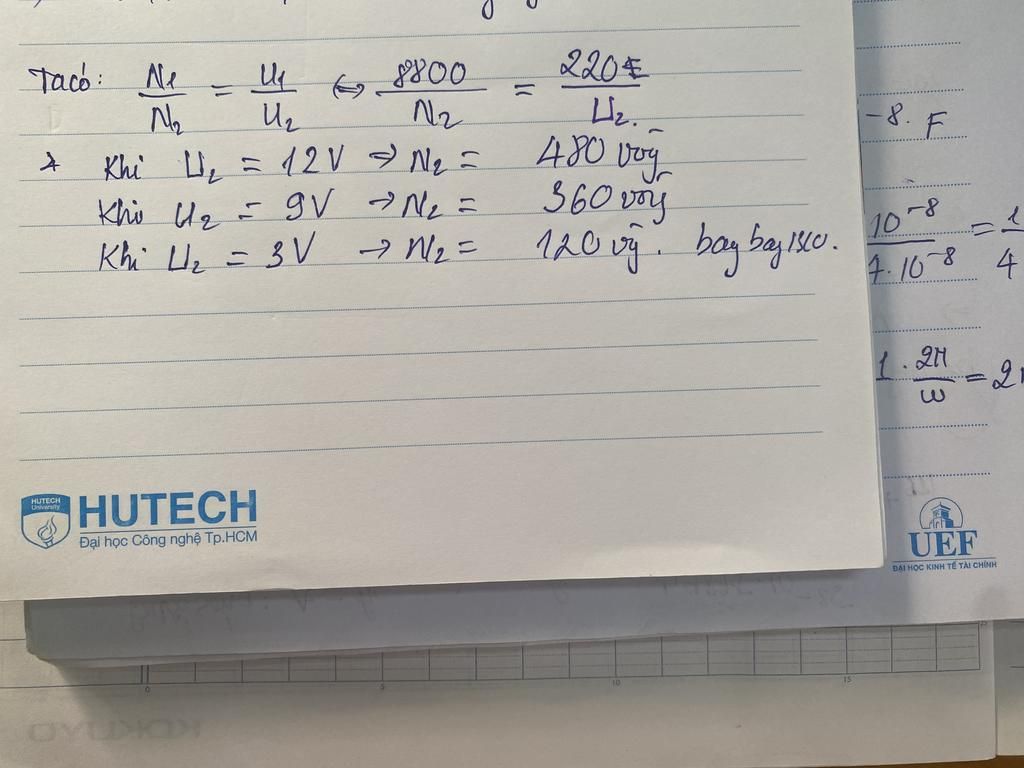 Ta có: N1/N2 = U1/U2 <-> 8800/N2 = 220/U2.
Khi U2 = 12V → N2 = 480 vòg
Khi U2 = 9V → N2 = 360 vòg
Khi U2 = 3V → N2 = 120 vg. bay bay
-8. F
10^-8 = 1
4.10^-8 4
1. 2π/ω = 2
HUTECH University
HUTECH
Đại học Công nghệ Tp.HCM
UEF
ĐẠI HỌC KINH TẾ TÀI CHÍNH
0 5 10 15
KOKUYO